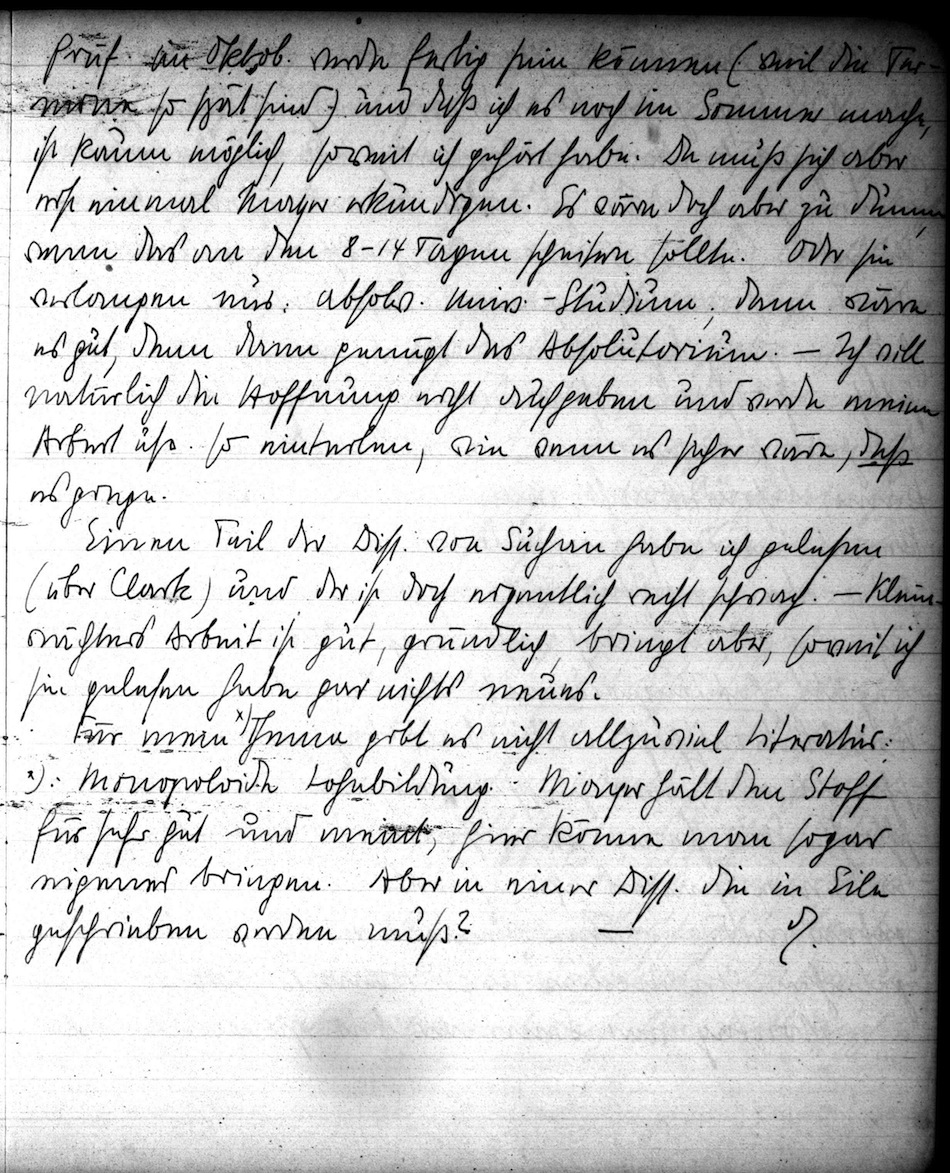 Prüf. im Oktob. werde fertig sein können (weil die Ter-
mine so spät sind) und daß ich es noch im Sommer mache,
ist kaum möglich, soweit ich gehört habe. Da muß ich aber
erst einmal Mayer erkundigen. Es wäre doch aber zu dumm,
wenn das an den 8-14 Tagen scheitern sollte. Oder sie
verlangen nur: absolv. Univ.-Studium; dann wäre
es gut, denn dann genügt das Absolutorium. — Ich will
natürlich die Hoffnung nicht aufgeben und werde meine
Arbeit so einteilen, wie wenn es sicher wäre, daß
es ginge.
Einen Teil der Diss. von habe ich gelesen
(über Clark) und der ist doch eigentlich recht schwach. — Klein-
wächters Arbeit ist gut, gründlich, bringt aber, soweit ich
sie gelesen habe gar nichts neues.
Für mein x) Thema gibt es nicht allzuviel Literatur.
x): Monopoloide Lohnbildung. Mayer hält den Stoff
für sehr gut und meint, hier könne man sogar
eigenes bringen. Aber in einer Diss. die in Eile
geschrieben werden muß? —